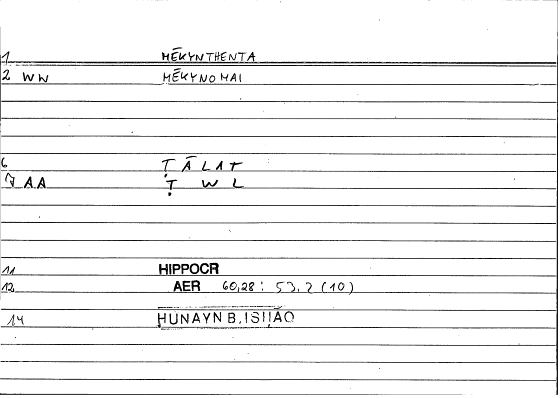 1 MĒKYNTHENTA
2 WW MĒKYNOMAI
6 ṬĀLAT
7 AA Ṭ W L
11 HIPPOCR
12 AER 60,28: 53.2 (10)
14 ḤUNAYN B. ISḤĀQ